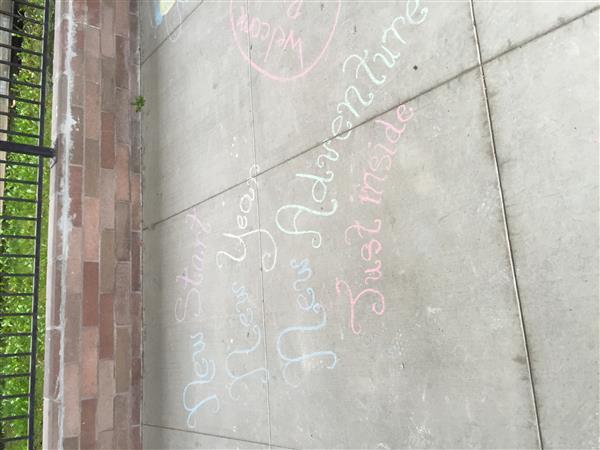 Welcome
New Start
New Year
New Adventure
Just inside